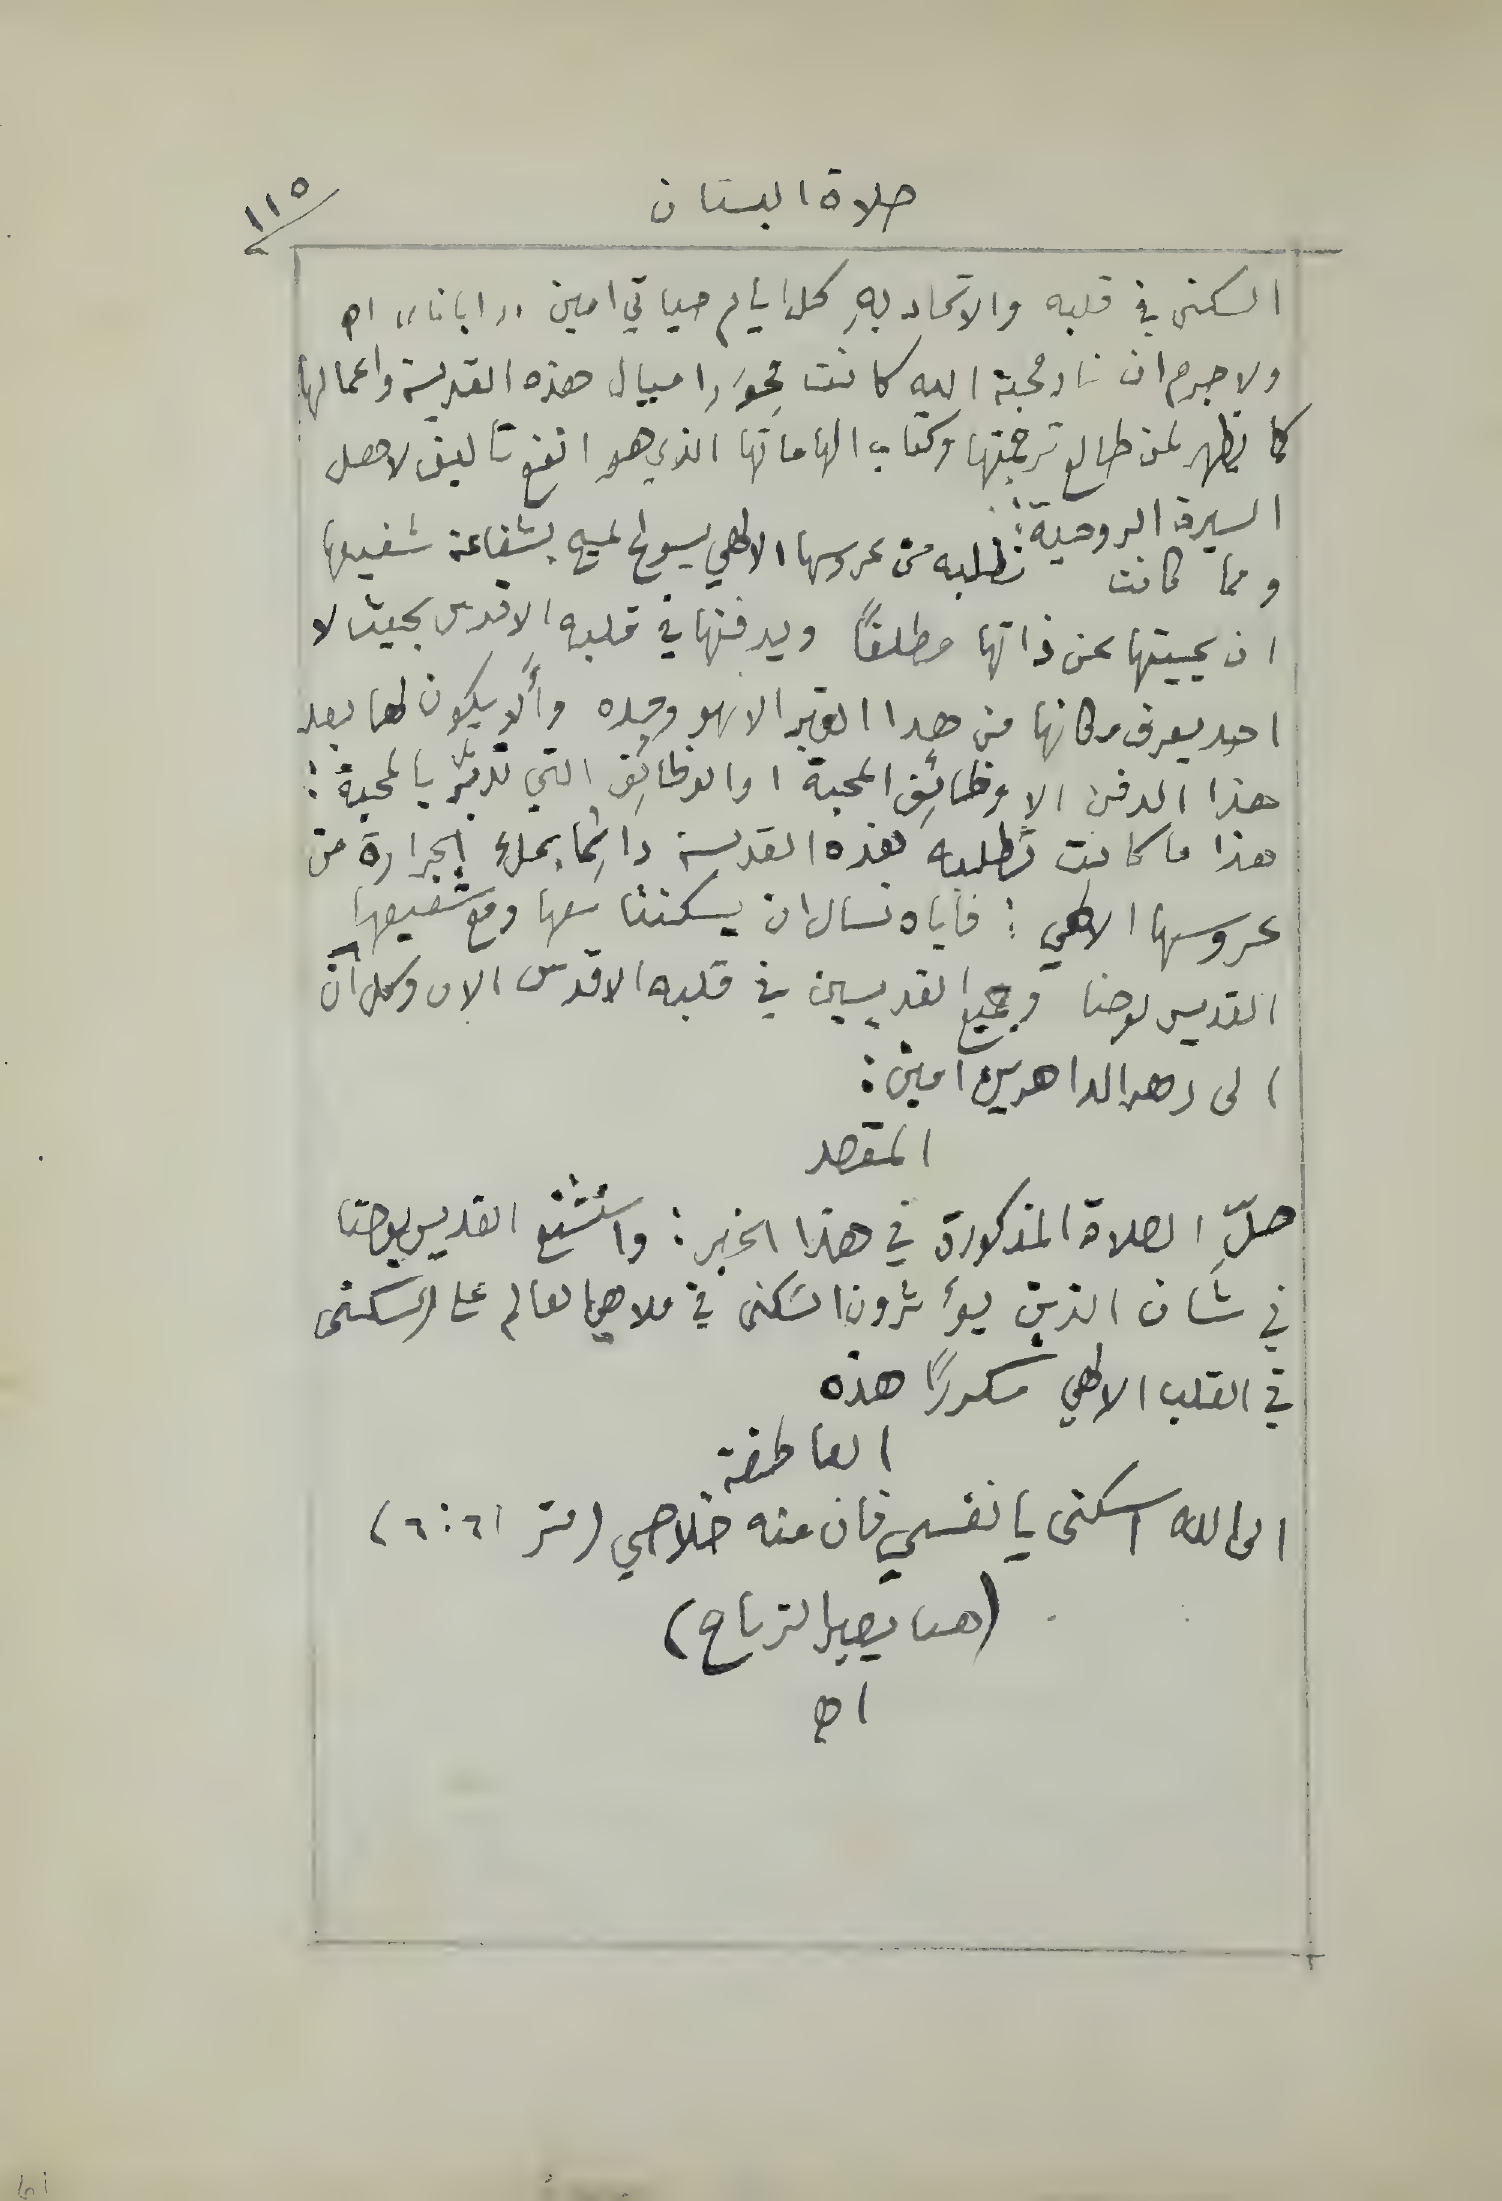 صلاة البستان
١١٥
السكنى في قلبه والاتحاد بهِ كل ايام حياتي امين ,, ابانا،، اه
ولا جرم ان نار محبة الله كانت محوَر اميال هذه القديسة واعمالها
كما يظهر لمن طالع ترجمتها وكتاب الهاماتها الذي هو انفع تاليف لاهل
السيرة الروحية:
ومما كانت تطلبه من عروسها الالهي يسوع المسيح بشفاعة شفيعها
ان يميتها عن ذاتها مطلقاً ويدفنها في قلبه الاقدس بحيث لا
احد يعرف مكانها من هدا القبر الا هو وحده وألا يكون لها بعد
هذا الدفن الا وظائف المحبة او الوظائف التي تدبَّر بالمحبة:
هذا ما كانت تطلبه هذه القديسة دائما بملءِ الحرارة من
عروسها الالهي: فاياه نسال ان يسكننا معها ومع شفيعها
القديس يوحنا وجميع القديسين في قلبه الاقدس الان وكل آن
الى دهر الداهرين امين:
المقصد
صلِّ الصلاة المذكورة في هذا الخبر: واستشفع القديس يوحنا
في شان الذين يؤثرون السَكنى في ملاهي العالم على السكنى
في القلب الالهي مكرراً هذه
العاطفة
الى الله اسكنى يا نفسي فان منه خلاصي (مز ٦١:٦)
(هنا يصير الزياح)
اه